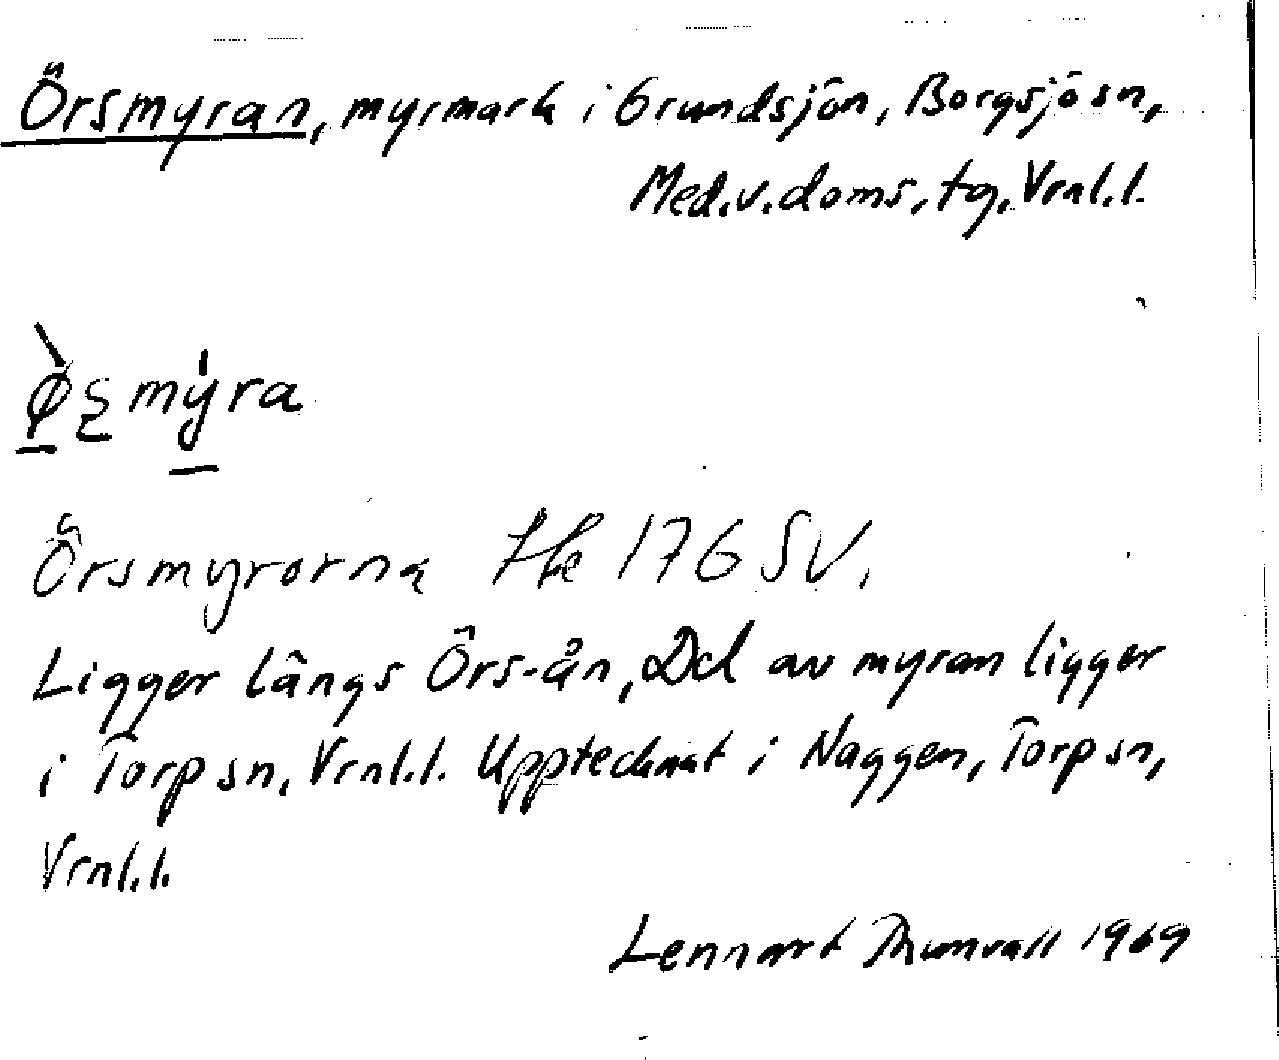 Örsmyran, myrmark i Grundsjön, Borgsjö sn,
Med.v.doms.tg, Vrnl.l.
myra
Örsmyrorna Hle 176 SV.
Ligger längs Örs-ån, Del av myran ligger
i Torp sn, Vrnl.l. Upptecknat i Naggen, Torp sn,
Vrnl.l.
Lennart Thunvall 1969